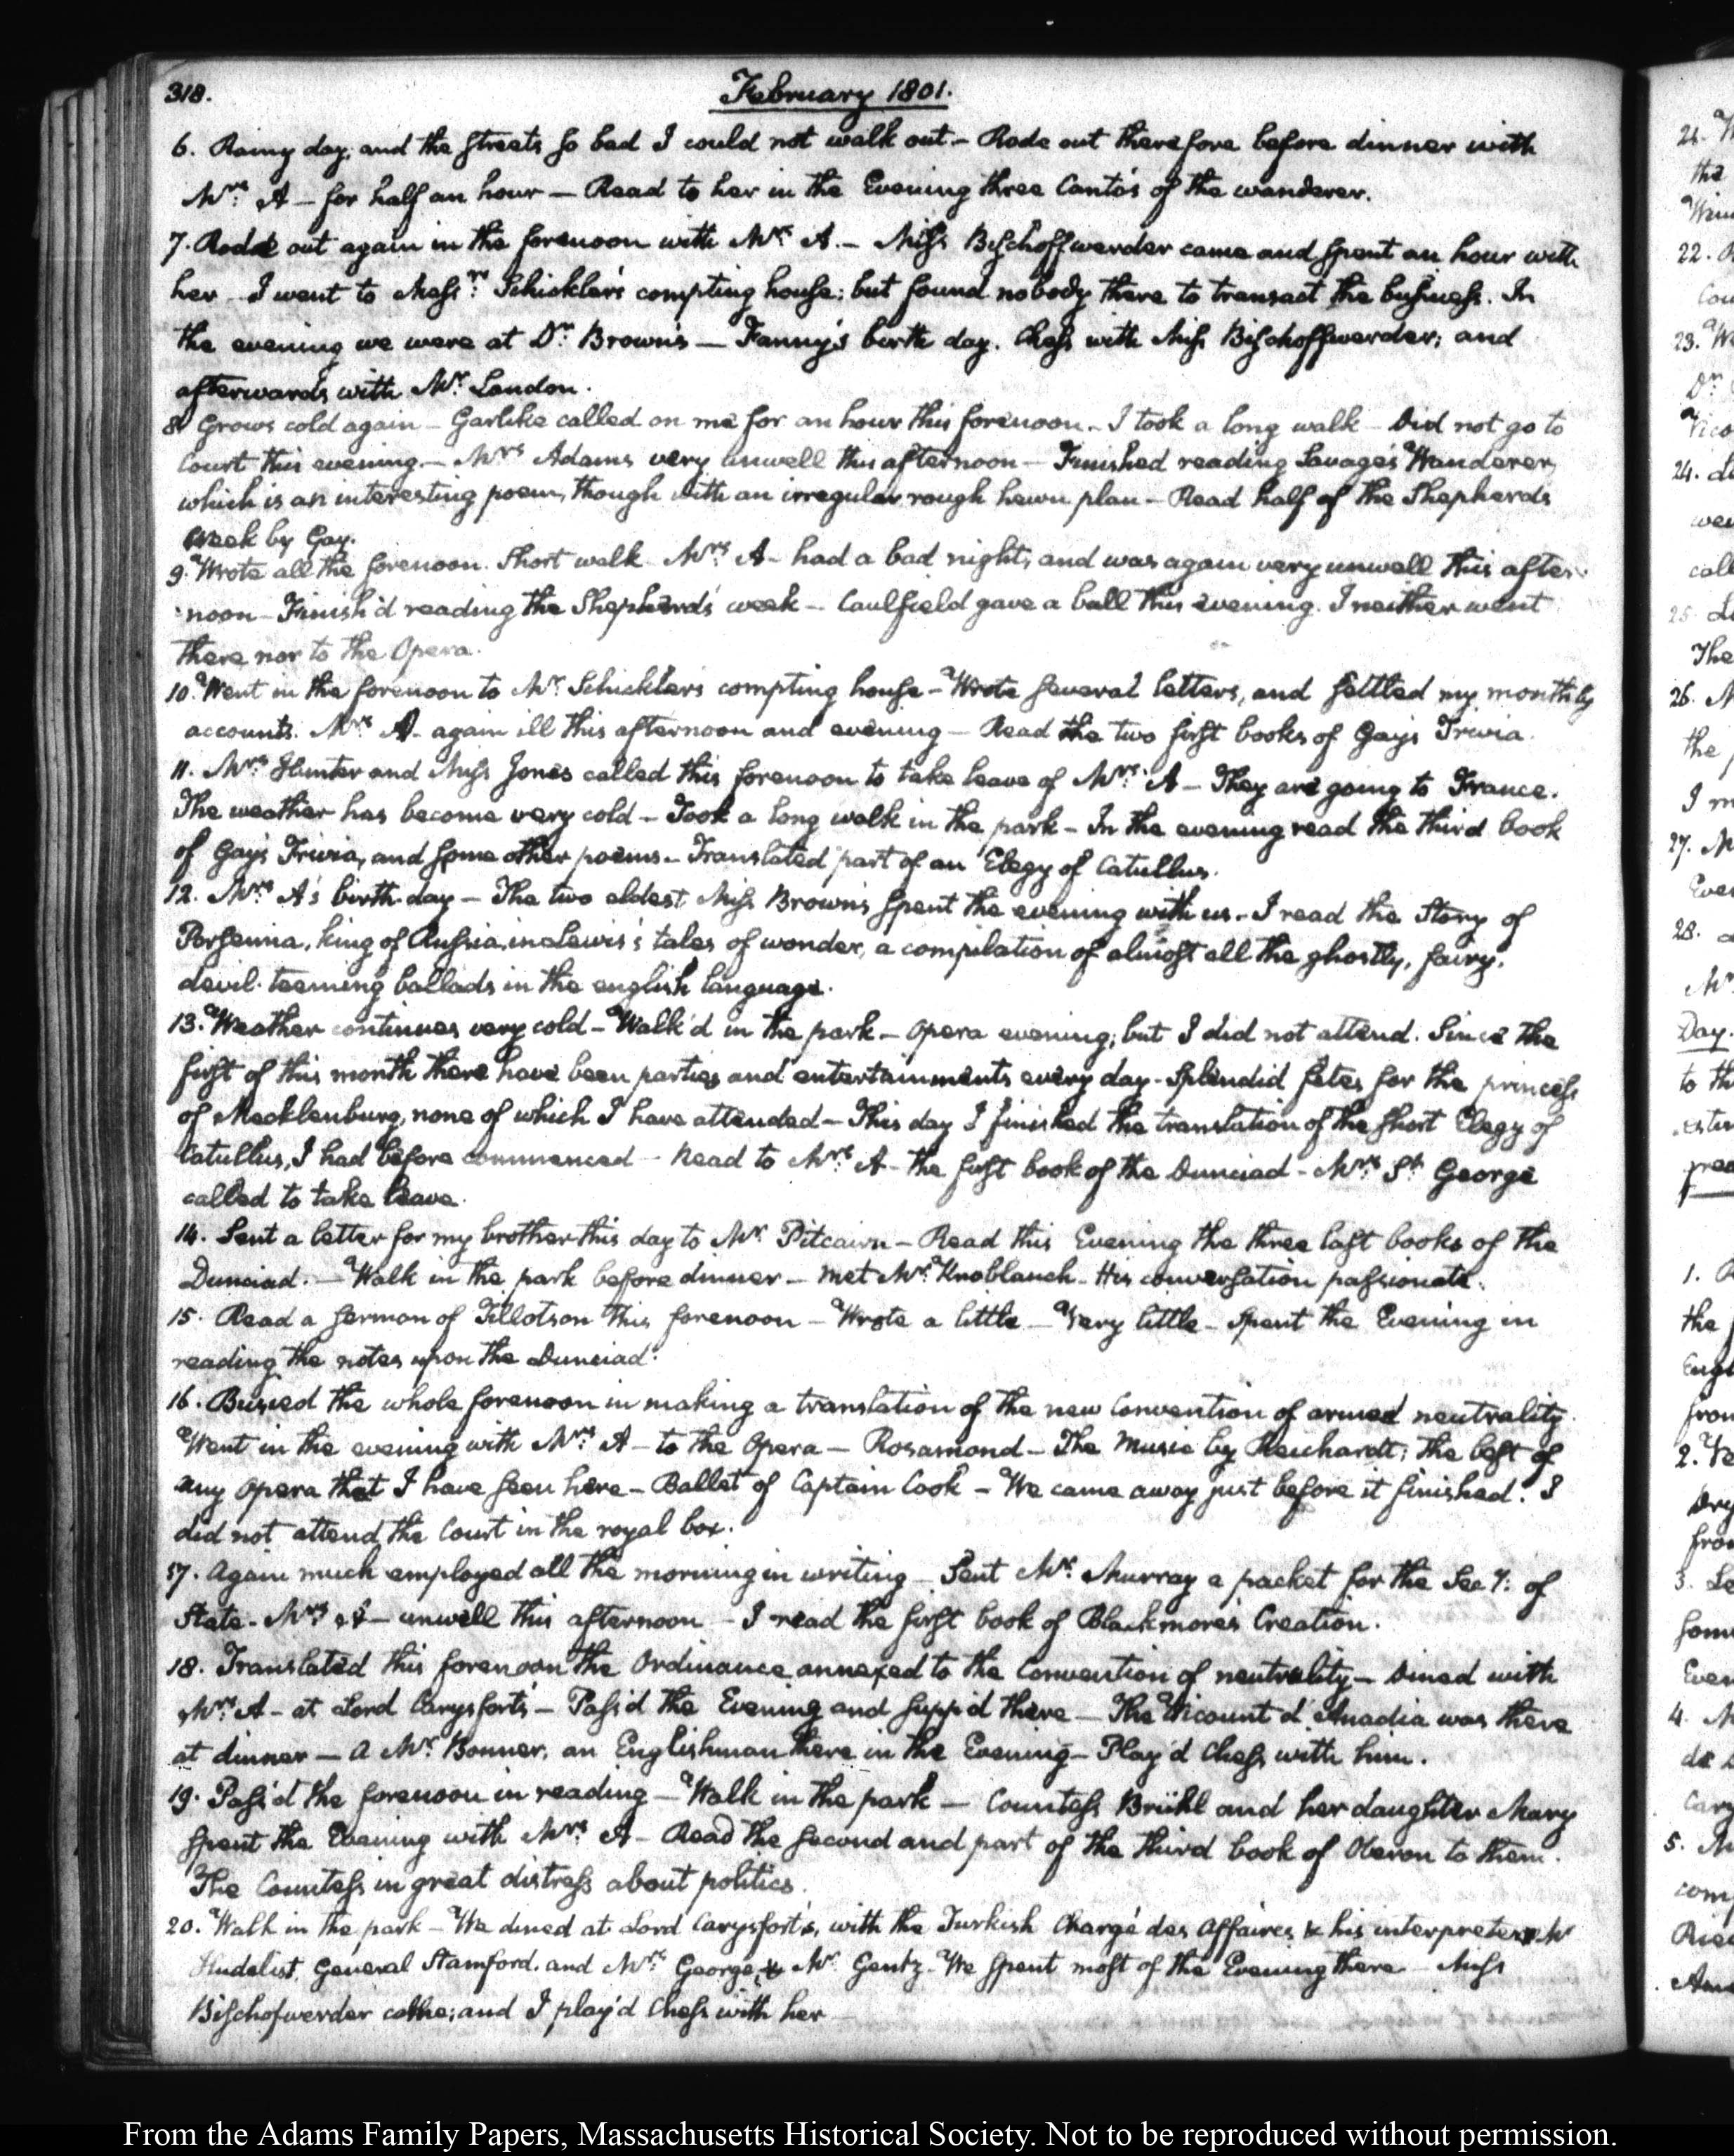 318.
February 1801.
6. Rainy day, and the streets so bad I could not walk out.- Rode out therefore before dinner with
Mrs: A - for half an hour - Read to her in the Evening three Canto's of the wanderer.
7. Rode out again in the forenoon with Mrs: A.- Miss Bischoffwerder came and spent an hour with
her - I went to Messrs: Schickler's compting house; but found nobody there to transact the business. In
the evening we were at Dr: Brown's - Fanny's birth day. Chess with Miss Bischoffwerder; and
afterwards with Mr: London.
8. Grows cold again - Garlike called on me for an hour this forenoon. - I took a long walk - Did not go to
Court this evening. - Mrs Adams very unwell this afternoon - Finished reading Savage's Wanderer,
which is an interesting poem, though with an irregular rough hewn plan - Read half of the Shepherds
Week by Gay.
9. Wrote all the forenoon. Short walk. Mrs: A - had a bad night, and was again very unwell this after-
noon - Finish'd reading the Shepherds' week - Caulfield gave a ball this evening. I neither went
there nor to the Opera.
10. Went in the forenoon to Mr. Schickler's compting house - Wrote several letters, and settled my monthly
accounts. Mrs A - again ill this afternoon and evening - Read the two first books of Gay's Trivia.
11. Mrs: Hunter and Miss Jones called this forenoon to take leave of Mrs: A - They are going to France.
The weather has become very cold - Took a long walk in the park - In the evening read the third book
of Gay's Trivia, and some other poems - Translated part of an Elegy of Catullus.
12. Mrs A's birth-day - The two eldest Miss Brown's spent the evening with us. - I read the Story of
Porsenna, king of Russia, in Lewis's tales of wonder, a compilation of almost all the ghostly, fairy,
devil-teeming ballads in the english language.
13. Weather continues very cold - Walk'd in the park - Opera evening; but I did not attend. Since the
first of this month there have been parties and entertainments every day - Splendid fetes for the princess
of Mecklenburg, none of which I have attended - This day I finished the translation of the short Elegy of
Catullus, I had before commenced - Read to Mrs A - the first book of the Dunciad - Mrs: St. George
called to take leave.
14. Sent a letter for my brother this day to Mr. Pitcairn - Read this Evening the three last books of the
Dunciad. - Walk in the park before dinner - Met Mr: Knoblauch - His conversation passionate.
15. Read a sermon of Tillotson this forenoon - Wrote a little - Very little - Spent the Evening in
reading the notes upon the Dunciad.
16. Busied the whole forenoon in making a translation of the new Convention of armed neutrality.
Went in the evening with Mrs: A - to the Opera - Rosamond - The Music by Reichardt; the best of
any Opera that I have seen here - Ballet of Captain Cook - We came away just before it finished. I
did not attend the Court in the royal box.
17. Again much employed all the morning in writing - Sent Mr: Murray a packet for the Secy: of
State - Mrs A - unwell this afternoon - I read the first book of Blackmore's Creation.
18. Translated this forenoon the Ordinance annexed to the Convention of neutrality - Dined with
Mrs: A - at Lord Carysfort's - Pass'd the Evening and supp'd there - The Vicount d'Anadia was there
at dinner - A Mr: Bonner, an Englishman there in the Evening - Play'd Chess with him.
19. Pass'd the forenoon in reading - Walk in the park - Countess Brühl and her daughter Mary
spent the Evening with Mrs: A - Read the second and part of the third book of Oberon to them.
The Countess in great distress about politics.
20. Walk in the park - We dined at Lord Carysfort's, with the Turkish Chargé des Affaires & his interpreter, Mr
Hudelist, General Stamford, and Mrs: George, & Mr Gentz - We spent most of the Evening there - Miss
Bischofwerder came; and I play'd Chess with her -
From the Adams Family Papers, Massachusetts Historical Society. Not to be reproduced without permission.